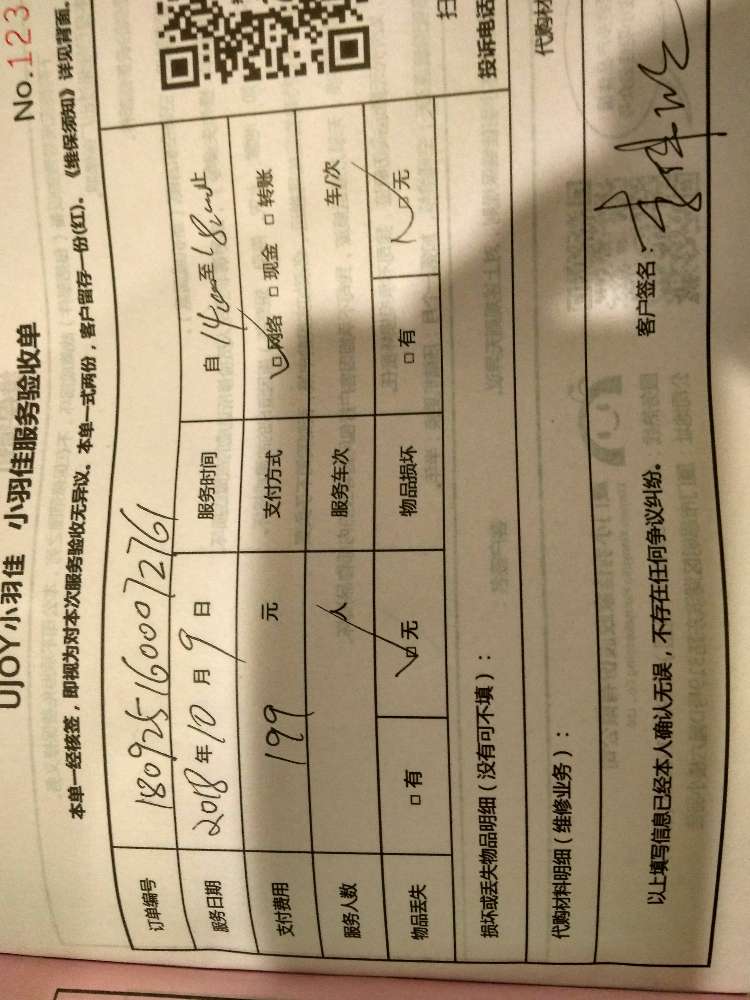 UJOY小羽佳 小羽佳服务验收单
No.123
本单一经核签，即视为对本次服务验收无异议。本单一式两份，客户留存一份(红)。《维保须知》详见背面。
订单编号 180925160072761
服务日期 2018年10月9日 服务时间 自14:00至18:00止
支付费用 199 元 支付方式 □网络 □现金 □转账
服务人数 人 服务车次 车/次
物品丢失 □有 □无 物品损坏 □有 □无
扫
投诉电话
损坏或丢失物品明细（没有可不填）：
代购材料明细（维修业务）：
代购材
以上填写信息已经本人确认无误，不存在任何争议纠纷。
客户签名：